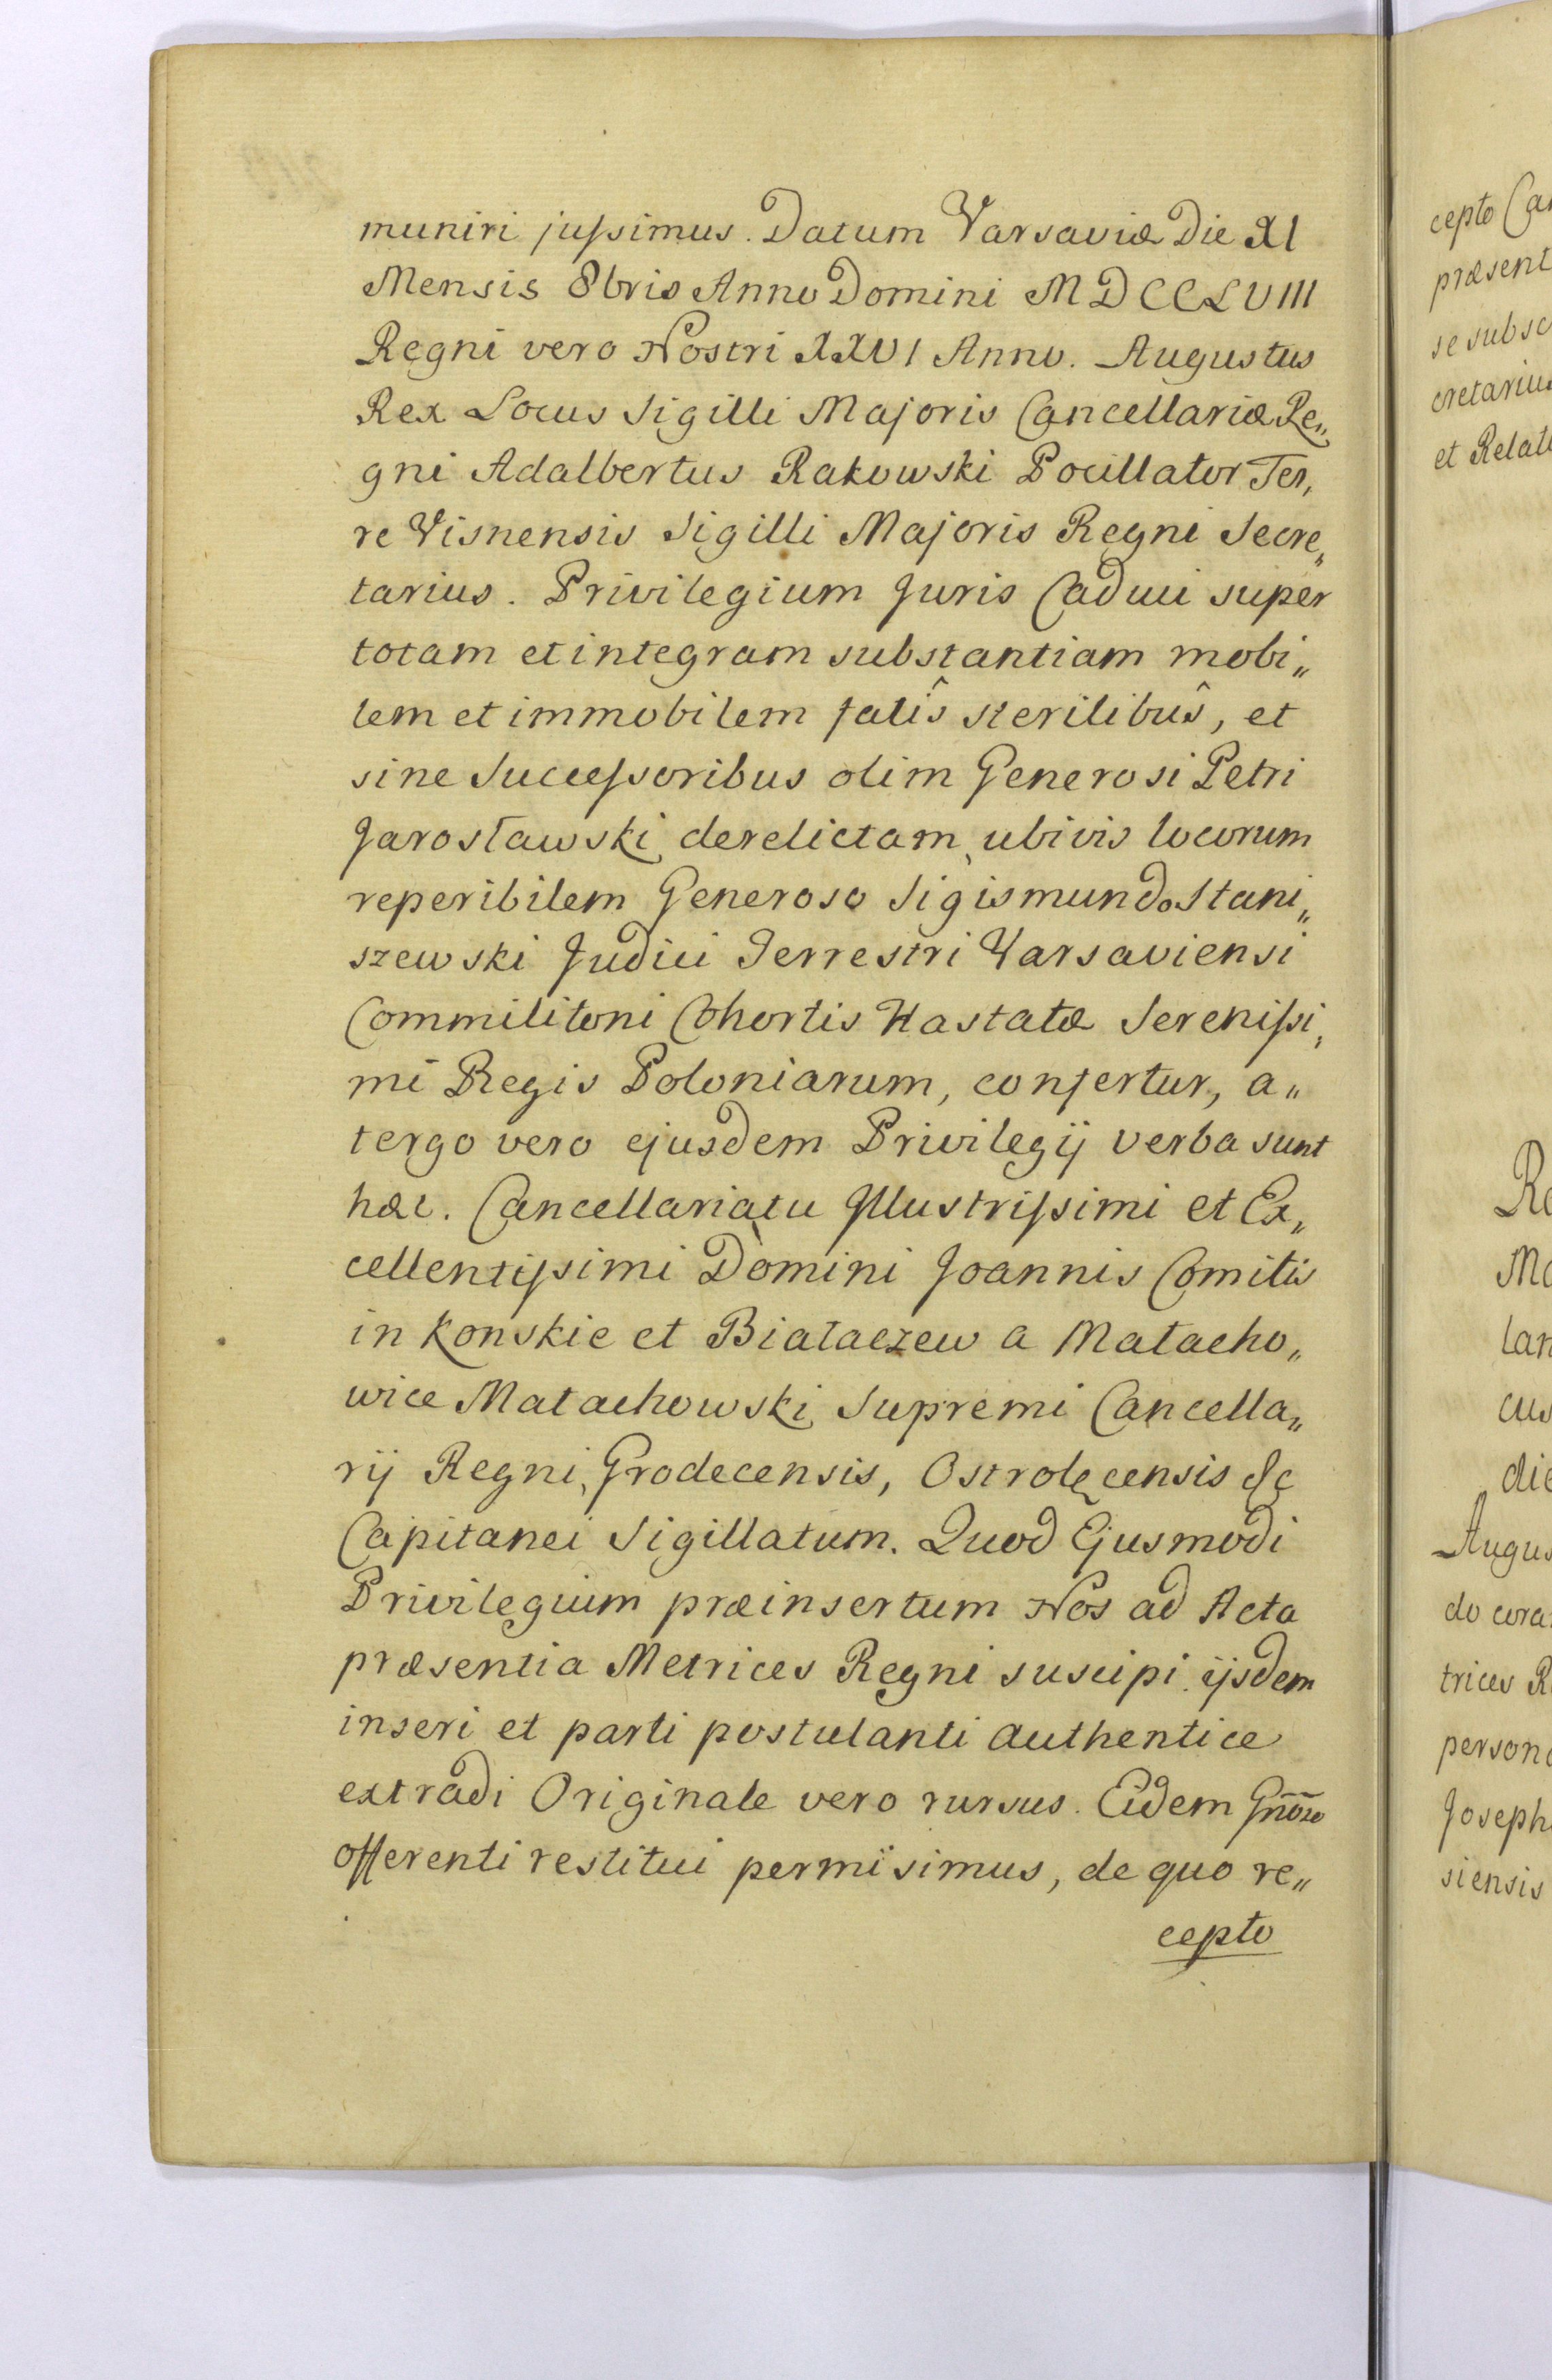 muniri jussimus. Datum Varsaviæ Die XI
Mensis 8bris Anno Domini MDCCLVIII
Regni vero Nostri XXVI Anno. Augustus
Rex Locus Sigilli Majoris Cancellariæ Re„
gni Adalbertus Rakowski Pocillator Ter,
re Visnensis Sigilli Majoris Regni Secre„
tarius. Privilegium Juris Caduci super
totam et integram substantiam mobi„
lem et immobilem fatîs sterilibûs, et
sine Successoribus olim Generosi Petri
Jarosławski derelictam, ubivis locorum
reperibilem Generoso Sigismundo Stani„
szewski Judici Terrestri Varsaviensi
Commilitoni Cohortis Hastatæ Serenissi,
mi Regis Poloniarum, confertur, a„
tergo vero ejusdem Privilegij verba sunt
hæc. Cancellariatu Illustrissimi et Ex„
cellentissimi Domini Joannis Comitis
in Konskie et Białaczew a Małacho„
wice Małachowski Supremi Cancella„
rij Regni, Grodecensis, Ostrołęcensis &c
Capitanei Sigillatum. Quod Ejusmodi
Privilegium præinsertum Nos ad Acta
præsentia Metrices Regni suscipi, ijsdem
inseri et parti postulanti authentice
extradi Originale vero rursus. Eidem Gnōso
offerenti restitui permisimus, de quo re„
cepto
cepto Can
præsent
se subsc
cretarius
et Relat
Re
Ma
lan
cus
die
Augus
do cora
trices R
persona
Joseph
siensis